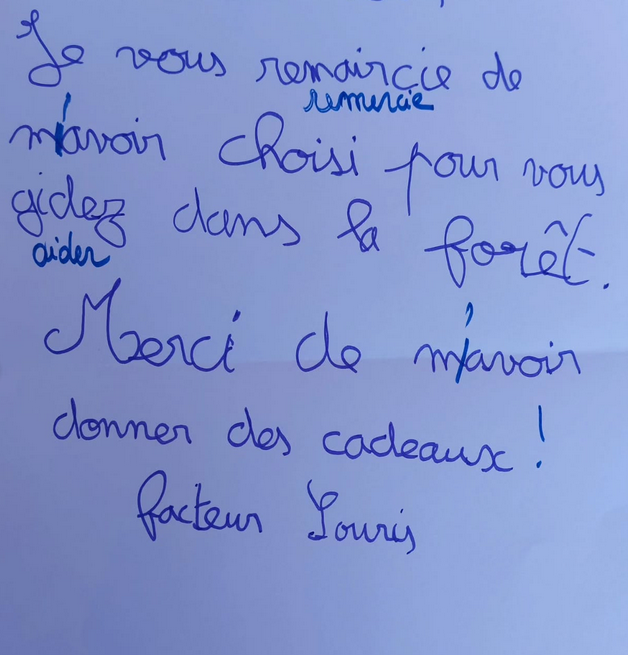 Je vous remairçie de
remercie
m'avoir choisi pour vous
gidez dans la forêt.
aider
Merci de m'avoir
donner des cadeaux !
facteur Souris